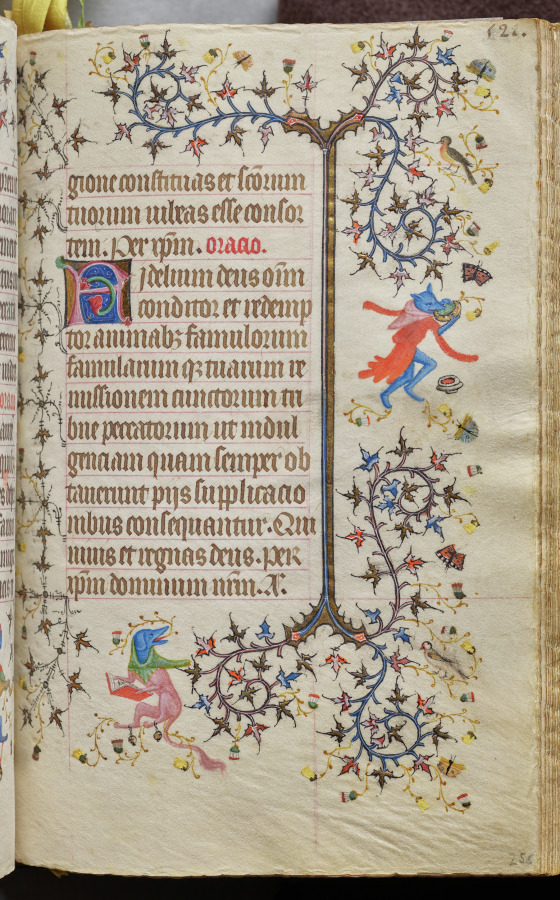 121.
gione constituas et scorum
tuorum iubeas esse consor
tem. Per xpm. oracio.
Fidelium deus oim
conditor et redemp
tor animabz famulorum
famularum qz tuarum re
missionem cunctorum tri
bue peccatorum ut indul
genciam quam semper ob
tauerunt pijs supplicacio
nibus consequantur. Qui
uiuis et regnas deus. per
xpm dominum nrm. A.